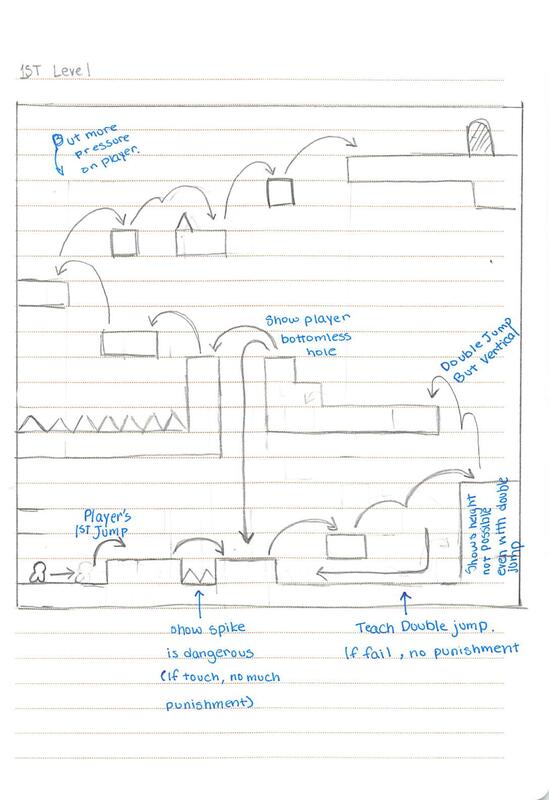 1ST Level
But more
pressure
on player.
Show player
bottomless
hole
Double Jump
But Vertical
Player's
1ST Jump
Shows height
not possible
even with double
jump
show spike
is dangerous
(If touch, no much
punishment)
Teach Double jump.
If fail, no punishment